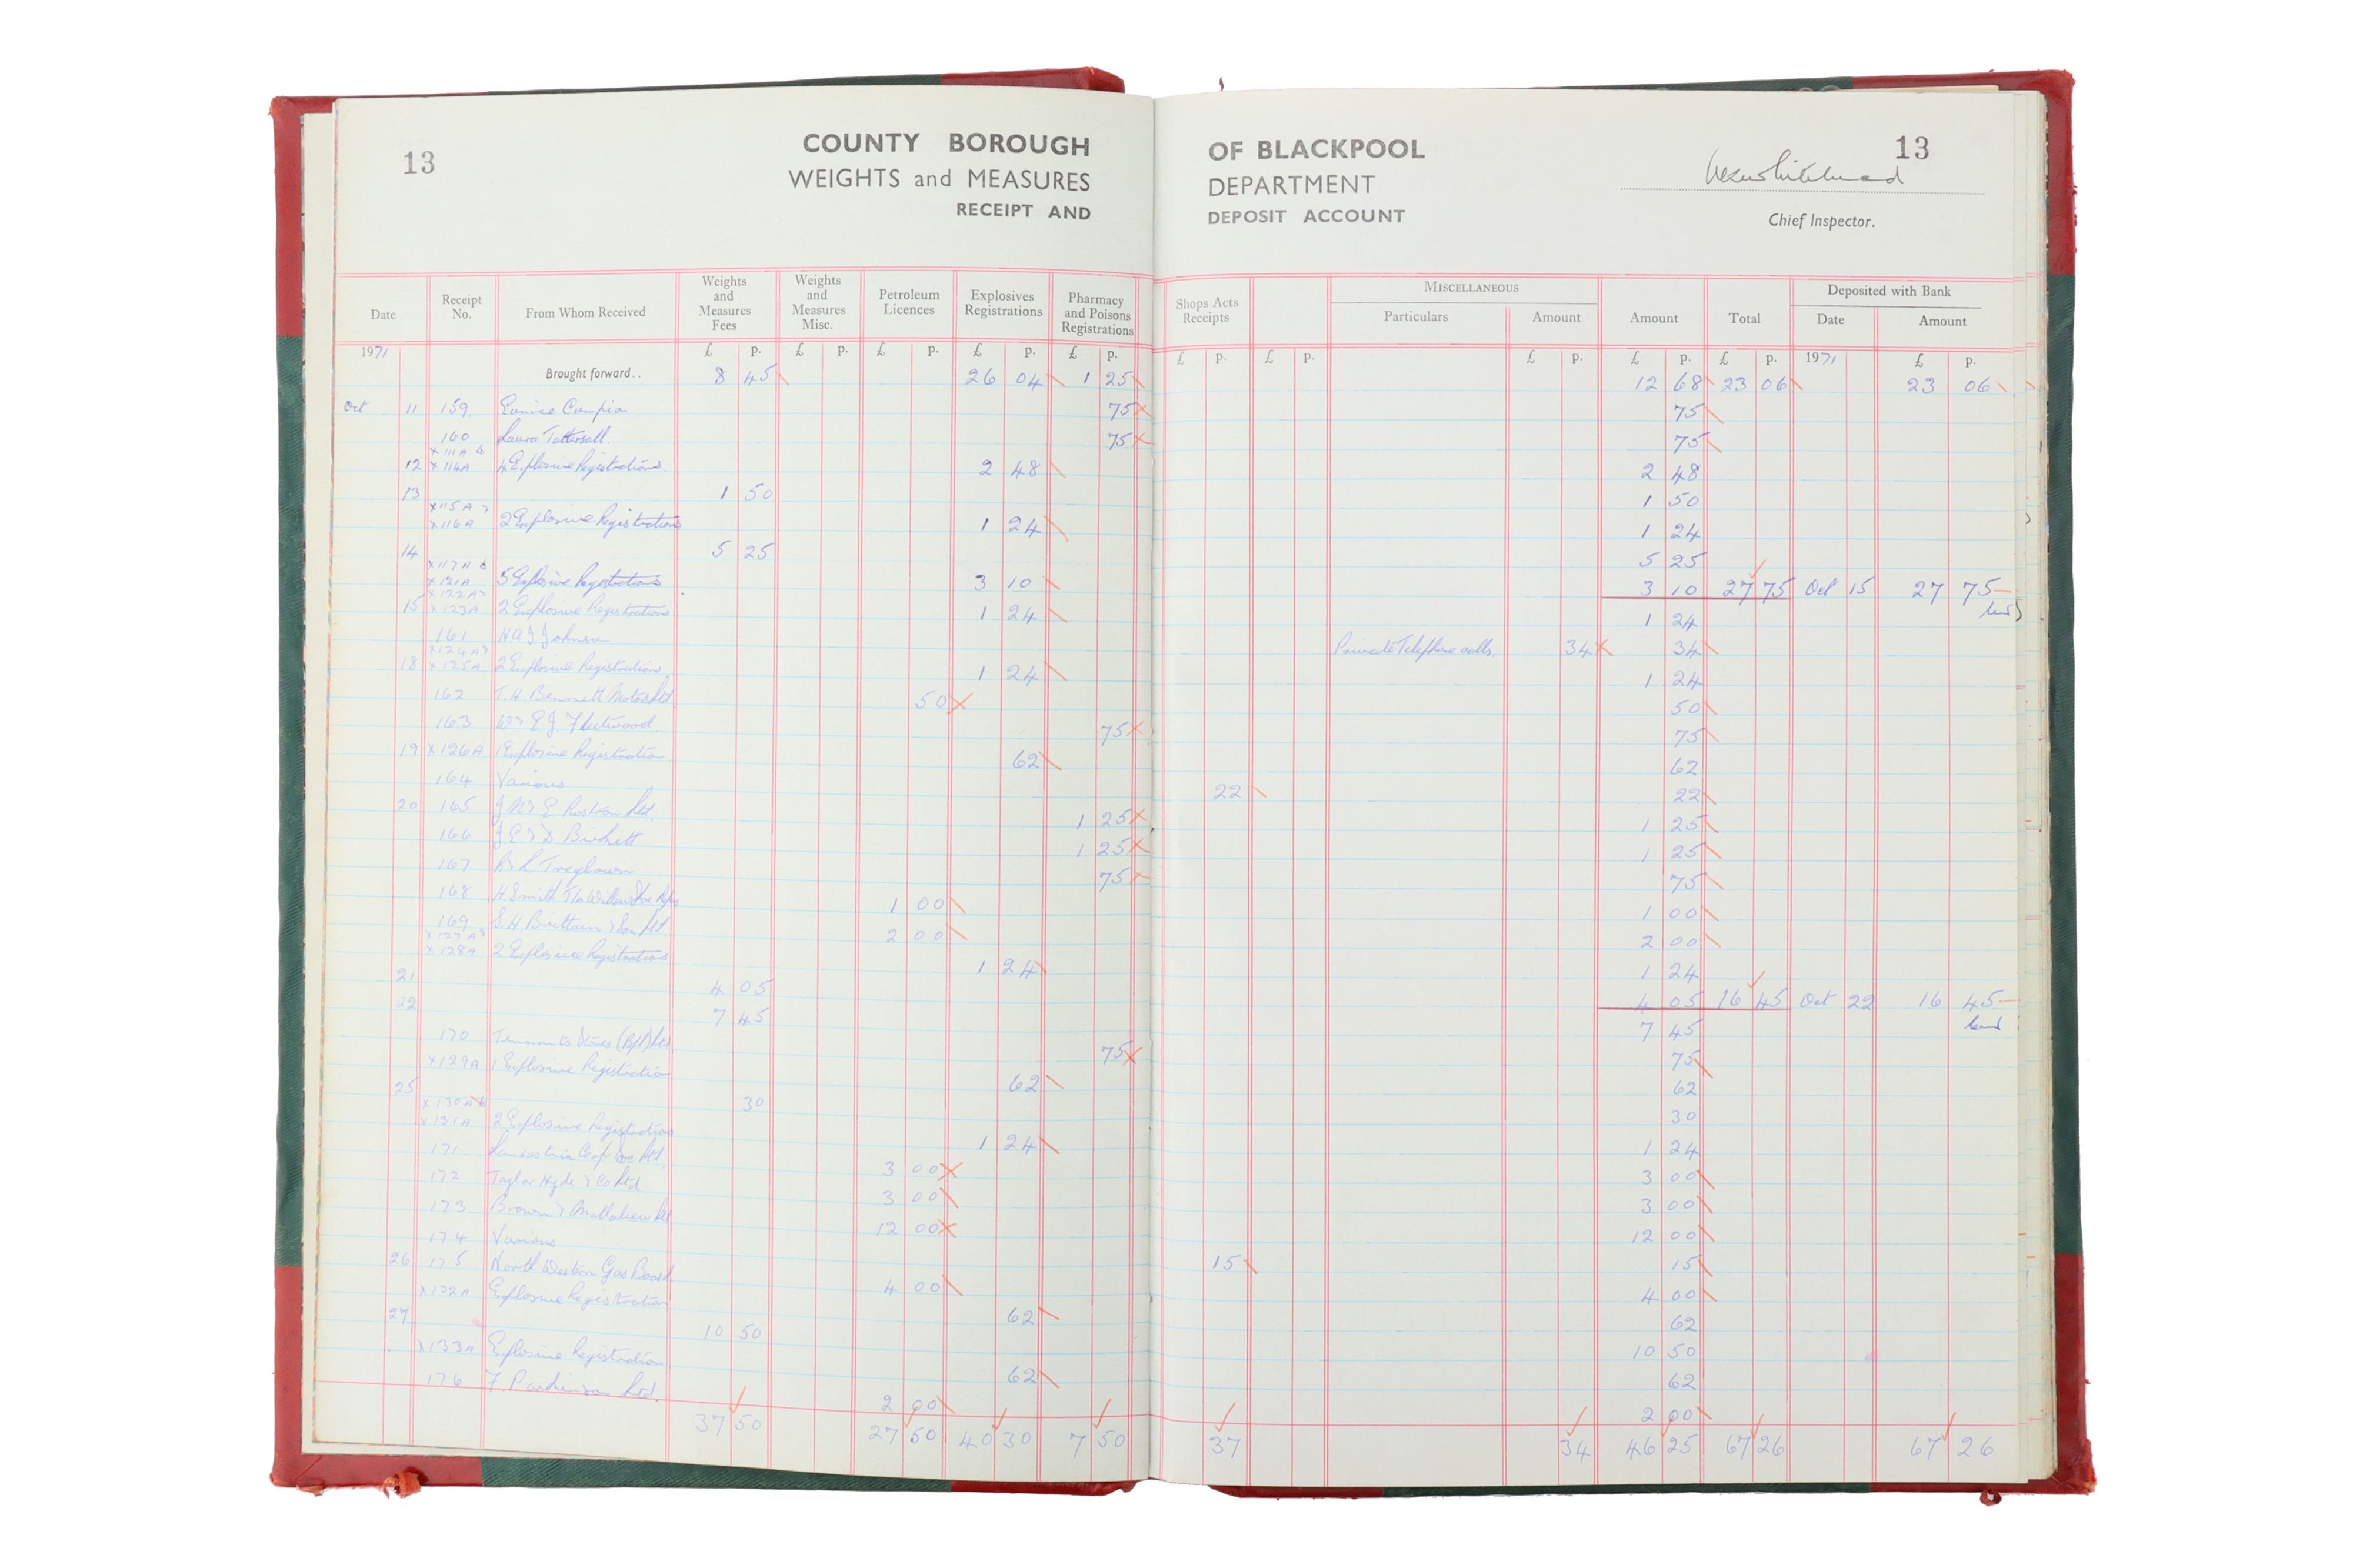 13 COUNTY BOROUGH OF BLACKPOOL 13
WEIGHTS and MEASURES DEPARTMENT
RECEIPT AND DEPOSIT ACCOUNT Chief Inspector.
Date Receipt No. From Whom Received Weights and Measures Fees Weights and Measures Misc. Petroleum Licences Explosives Registrations Pharmacy and Poisons Registrations Shops Acts Receipts MISCELLANEOUS Particulars Amount Amount Total Deposited with Bank Date Amount
1971 £ p. £ p. £ p. £ p. £ p. £ p. £ p. £ p. £ p. £ p. 1971 £ p.
Brought forward.. 8 45 26 04 1 25 12 68 23 06 23 06
Oct 11 159 Eunice Campion 75 75
160 Laura Tattersall. 75 75
x 111A &
12 x 114A 4 Explosive Registrations 2 48 2 48
13 1 50 1 50
x 115A &
x 116A 2 Explosive Registrations 1 24 1 24
14 5 25 5 25
x 117A &
x 121A 5 Explosive Registrations 3 10 3 10 27 75 Oct 15 27 75
x 122A &
15 x 123A 2 Explosive Registrations 1 24 1 24
161 Johnson Private Telephone calls. 34 34
x 124A &
18 x 125A 2 Explosive Registrations 1 24 1 24
162 T. H. Bennett Motors Ltd. 50 50
163 Fleetwood. 75 75
19 x 126A 1 Explosive Registration 62 62
164 Various 22 22
20 165 Rostron Ltd. 1 25 1 25
166 J E & D Birchett 1 25 1 25
167 Treglown 75 75
168 H Smith 1 00 1 00
169 S. H Brittain & Son Ltd 2 00 2 00
x 127A &
x 128A 2 Explosive Registrations 1 24 1 24
21 4 05 4 05 16 45 Oct 22 16 45
22 7 45 7 45
170 Tennants Stores (Bpl) Ltd. 75 75
x 129A 1 Explosive Registration 62 62
25 30 30
x 130A &
x 131A 2 Explosive Registrations 1 24 1 24
171 Lancastria Coop Soc Ltd. 3 00 3 00
172 Taylor Hyde & Co Ltd 3 00 3 00
173 Brown & Mallalieu Ltd 12 00 12 00
174 Various 15 15
26 175 North Western Gas Board. 4 00 4 00
x 132A Explosive Registration 62 62
27 10 50 10 50
x 133A Explosive Registration 62 62
176 F. Parkinson Ltd. 2 00 2 00
37 50 27 50 40 30 7 50 37 34 46 25 67 26 67 26